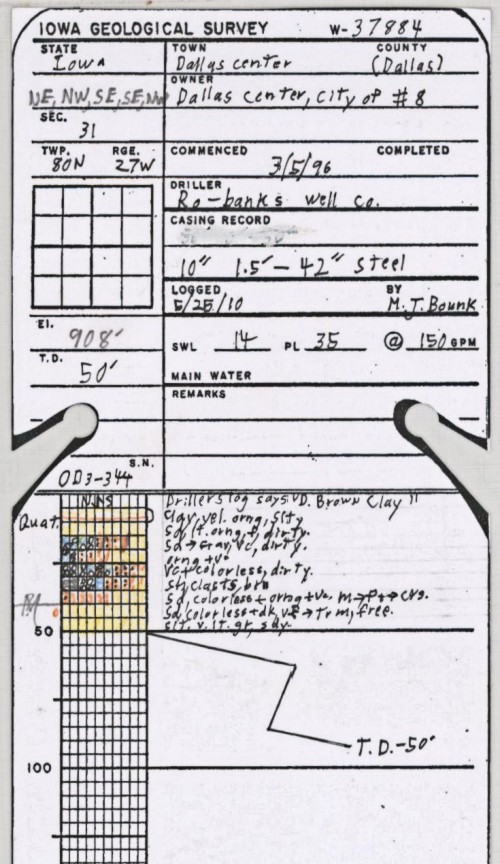 IOWA GEOLOGICAL SURVEY W-37884
STATE TOWN COUNTY
Iowa Dallas center (Dallas)
OWNER
NE, NW, SE, SE, NW Dallas center, city of #8
SEC.
31
TWP. RGE. COMMENCED COMPLETED
80N 27W 3/5/96
DRILLER
Ro-banks well co.
CASING RECORD
10" 1.5'-42" steel
LOGGED BY
5/25/10 M.J. Bounk
El.
908'
SWL 14 PL 35 @ 150 GPM
T.D.
50'
MAIN WATER
REMARKS
S.N.
OD3-344
N.N.S Drillers log says: D. Brown Clay "
Quat. Clay, yel. orng, slty
dirty.
Sd → Grav, vc, dirty.
orng + vc
vc + colorless, dirty.
Sh, clasts, brn
Sd, colorless + orng + vc, m → crs.
Sd colorless + dk, → Tr m, free.
M
slt, v. lt. gr, sdy
50
T.D.-50'
100